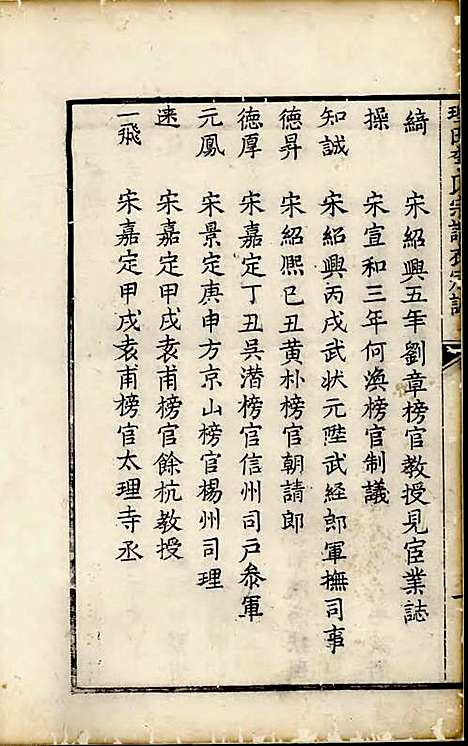 綺　宋紹興五年劉章榜官教授見宦業誌
操　宋宣和三年何渙榜官制議
知誠　宋紹興丙戌武狀元陞武經郎軍撫司事
德昇　宋紹熙巳丑黃朴榜官朝請郎
德厚　宋嘉定丁丑吳潛榜官信州司戶叅軍
元鳳　宋景定庚申方京山榜官楊州司理
逨　宋嘉定甲戌袁甫榜官餘杭教授
一飛　宋嘉定甲戌袁甫榜官太理寺丞